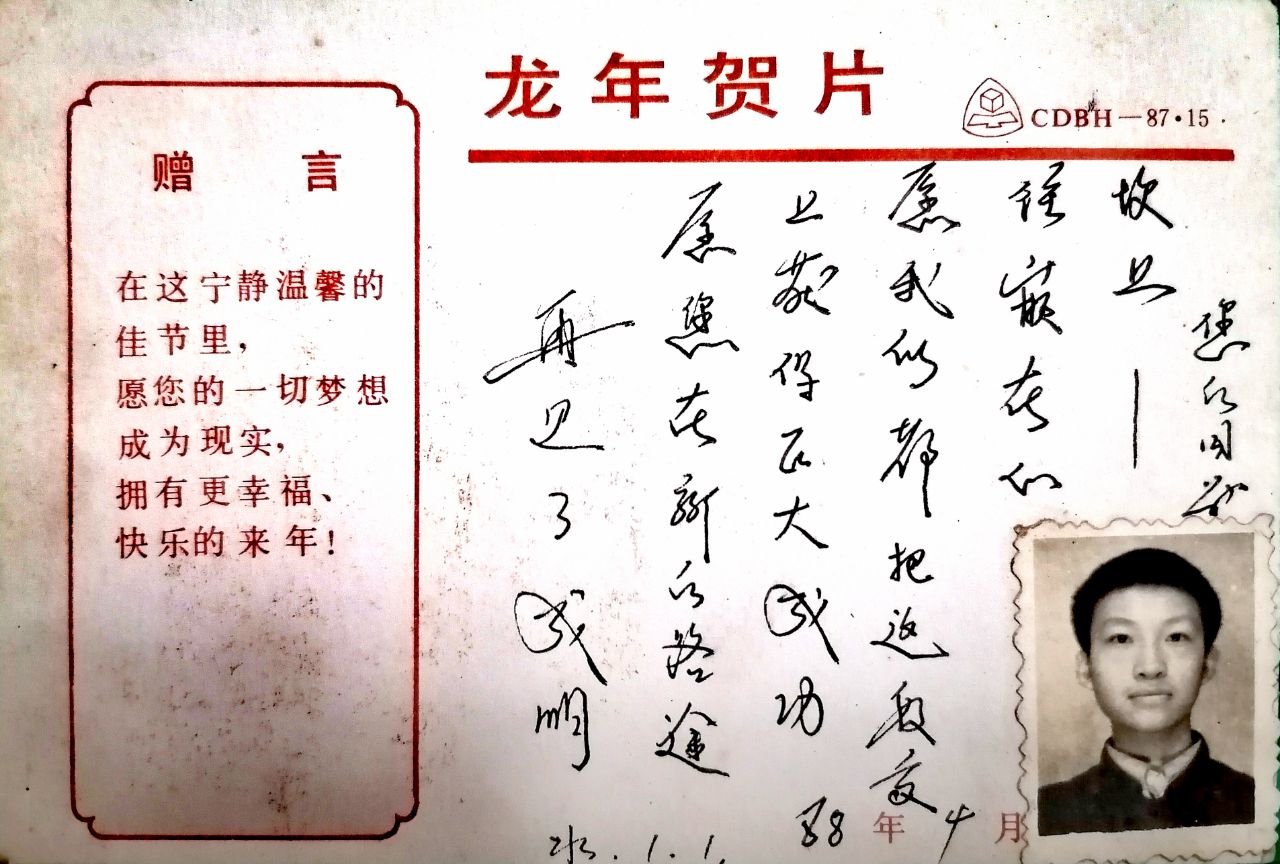 龙年贺片
CDBH—87·15
赠言
在这宁静温馨的
佳节里，
愿您的一切梦想
成为现实，
拥有更幸福、
快乐的来年！
您的同学
愿我们都把这段
上获得巨大成功
愿您在新的路途
再见了成明
88年4月